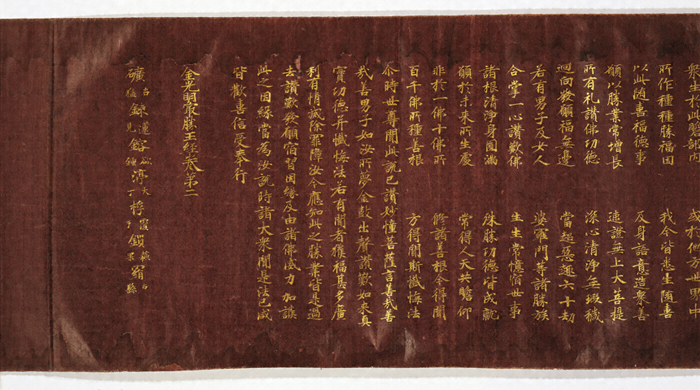 衆生於此贍部洲 或於他方世界中
所作種種勝福因 我今皆悉生隨喜
以此隨喜福德事 及身語意造衆善
願以勝業常增長 速證無上大菩提
所有礼讚佛功德 深心清淨無瑕穢
迴向發願福無邊 當超惡趣六十劫
若有男子及女人 婆羅門等諸勝族
合掌一心讚歎佛 生生常憶宿世事
諸根清淨身圓滿 殊勝功德皆成就
願於未來所生處 常得人天共瞻仰
非於一佛十佛所 修諸善根今得聞
百千佛所種善根 方得聞斯懺悔法
尒時世尊聞此說已讚妙幢菩薩言善哉善
哉善男子如汝所夢金鼓出聲讚歎如來真
實功德并懺悔法若有聞者獲福甚多廣
利有情滅除罪障汝今應知此之勝業皆是過
去讚歎發願宿習因緣及由諸佛威力加護
此之因緣當為汝說時諸大衆聞是法已咸
皆歡喜信受奉行
金光明最勝王經卷第二
礦古猛鍊蓮見鎔欲鍾渟